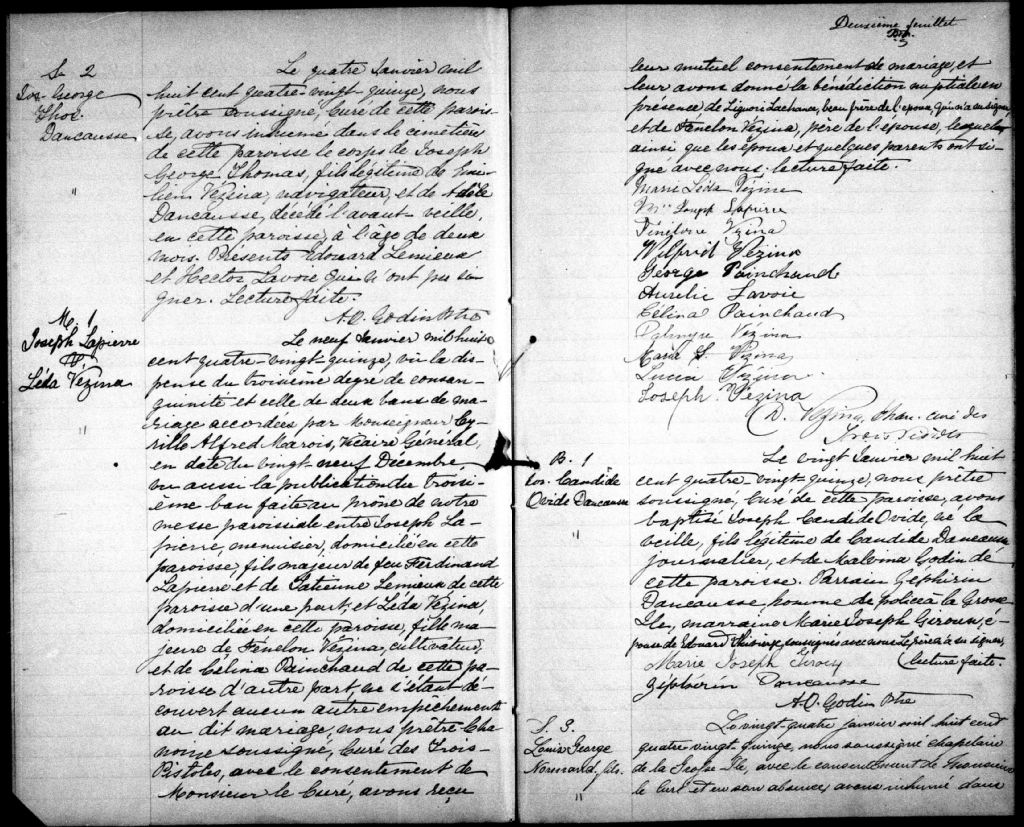 S. 2
Jos. George
Thos.
Dancausse
"
Le quatre Janvier mil
huit cent quatre-vingt-quinze, nous
prêtre soussigné, Curé de cette parois-
se, avons inhumé dans le cimetière
de cette paroisse le corps de Joseph
George Thomas, fils légitime de
lien Vézina, navigateur, et de Adèle
Dancausse, décédé l'avant-veille,
en cette paroisse, à l'âge de deux
mois. Présents Edouard Lemieux
et Hector Lavoie qui n'ont pu si-
gner. Lecture faite.
A.O. Godin Ptre
M. 1
Joseph Lapierre
&
Léda Vézina
Le neuf Janvier mil huit
cent quatre-vingt-quinze, vu la dis-
pense du troisième degré de consan-
guinité et celle de deux bans de ma-
riage accordées par Monseigneur Cy-
rille Alfred Marois, Vicaire Général,
en date du vingt-neuf Décembre,
vu aussi la publication du troisi-
ème ban faite au prône de notre
messe paroissiale entre Joseph La-
pierre, menuisier, domicilié en cette
paroisse, fils majeur de feu Ferdinand
Lapierre et de Lemieux de cette
paroisse d'une part, et Léda Vézina,
domiciliée en cette paroisse, fille ma-
jeure de Fénelon Vézina, cultivateur,
et de Célina Painchaud de cette pa-
roisse d'autre part, ne s'étant dé-
couvert aucun autre empêchement
au dit mariage, nous prêtre Cha-
noine soussigné, Curé des Trois-
Pistoles, avec le consentement de
Monsieur le Curé, avons reçu
Deuxième feuillet
leur mutuel consentement de mariage, et
leur avons donné la bénédiction nuptiale en
présence de Liguori Lachance, beau frère de l'époux, qui n'a su signer,
et de Fénelon Vézina, père de l'épouse, lesquels
ainsi que les époux et quelques parents ont si-
gné avec nous. lecture faite.
Marie Léda Vézina
Joseph Lapierre
Fénelon Vézina
Wilfrid Vézina
George Painchaud
Aurelie Lavoie
Célina Painchaud
Palmyre Vézina
Maria S. Vézina
Lucien Vézina
Joseph Vézina
D. Vézina, Chan. curé des
Trois Pistoles
B. 1
Jos. Candide
Ovide Dancausse
Le vingt Janvier mil huit
cent quatre-vingt-quinze, nous prêtre
soussigné, Curé de cette paroisse, avons
baptisé Joseph Candide Ovide, né la
veille, fils légitime de Candide Dancausse
journalier, et de Malvina Godin de
cette paroisse. Parrain Zéphirin
Dancausse, homme de police à la Grosse
Ile, marraine Marie Joseph Giroux, é-
pouse de Edouard soussignés avec nous. Le père a su signer.
Marie Joseph Giroux (lecture faite.
Ziphérin Dancausse
A.O. Godin Ptre
S. 3.
Louis George
Normand, fils.
"
Le vingt-quatre janvier mil huit cent
quatre-vingt-quinze, nous soussigné chapelain
de la Grosse Ile, avec le consentement de Monsieur
le Curé et en son absence, avons inhumé dans